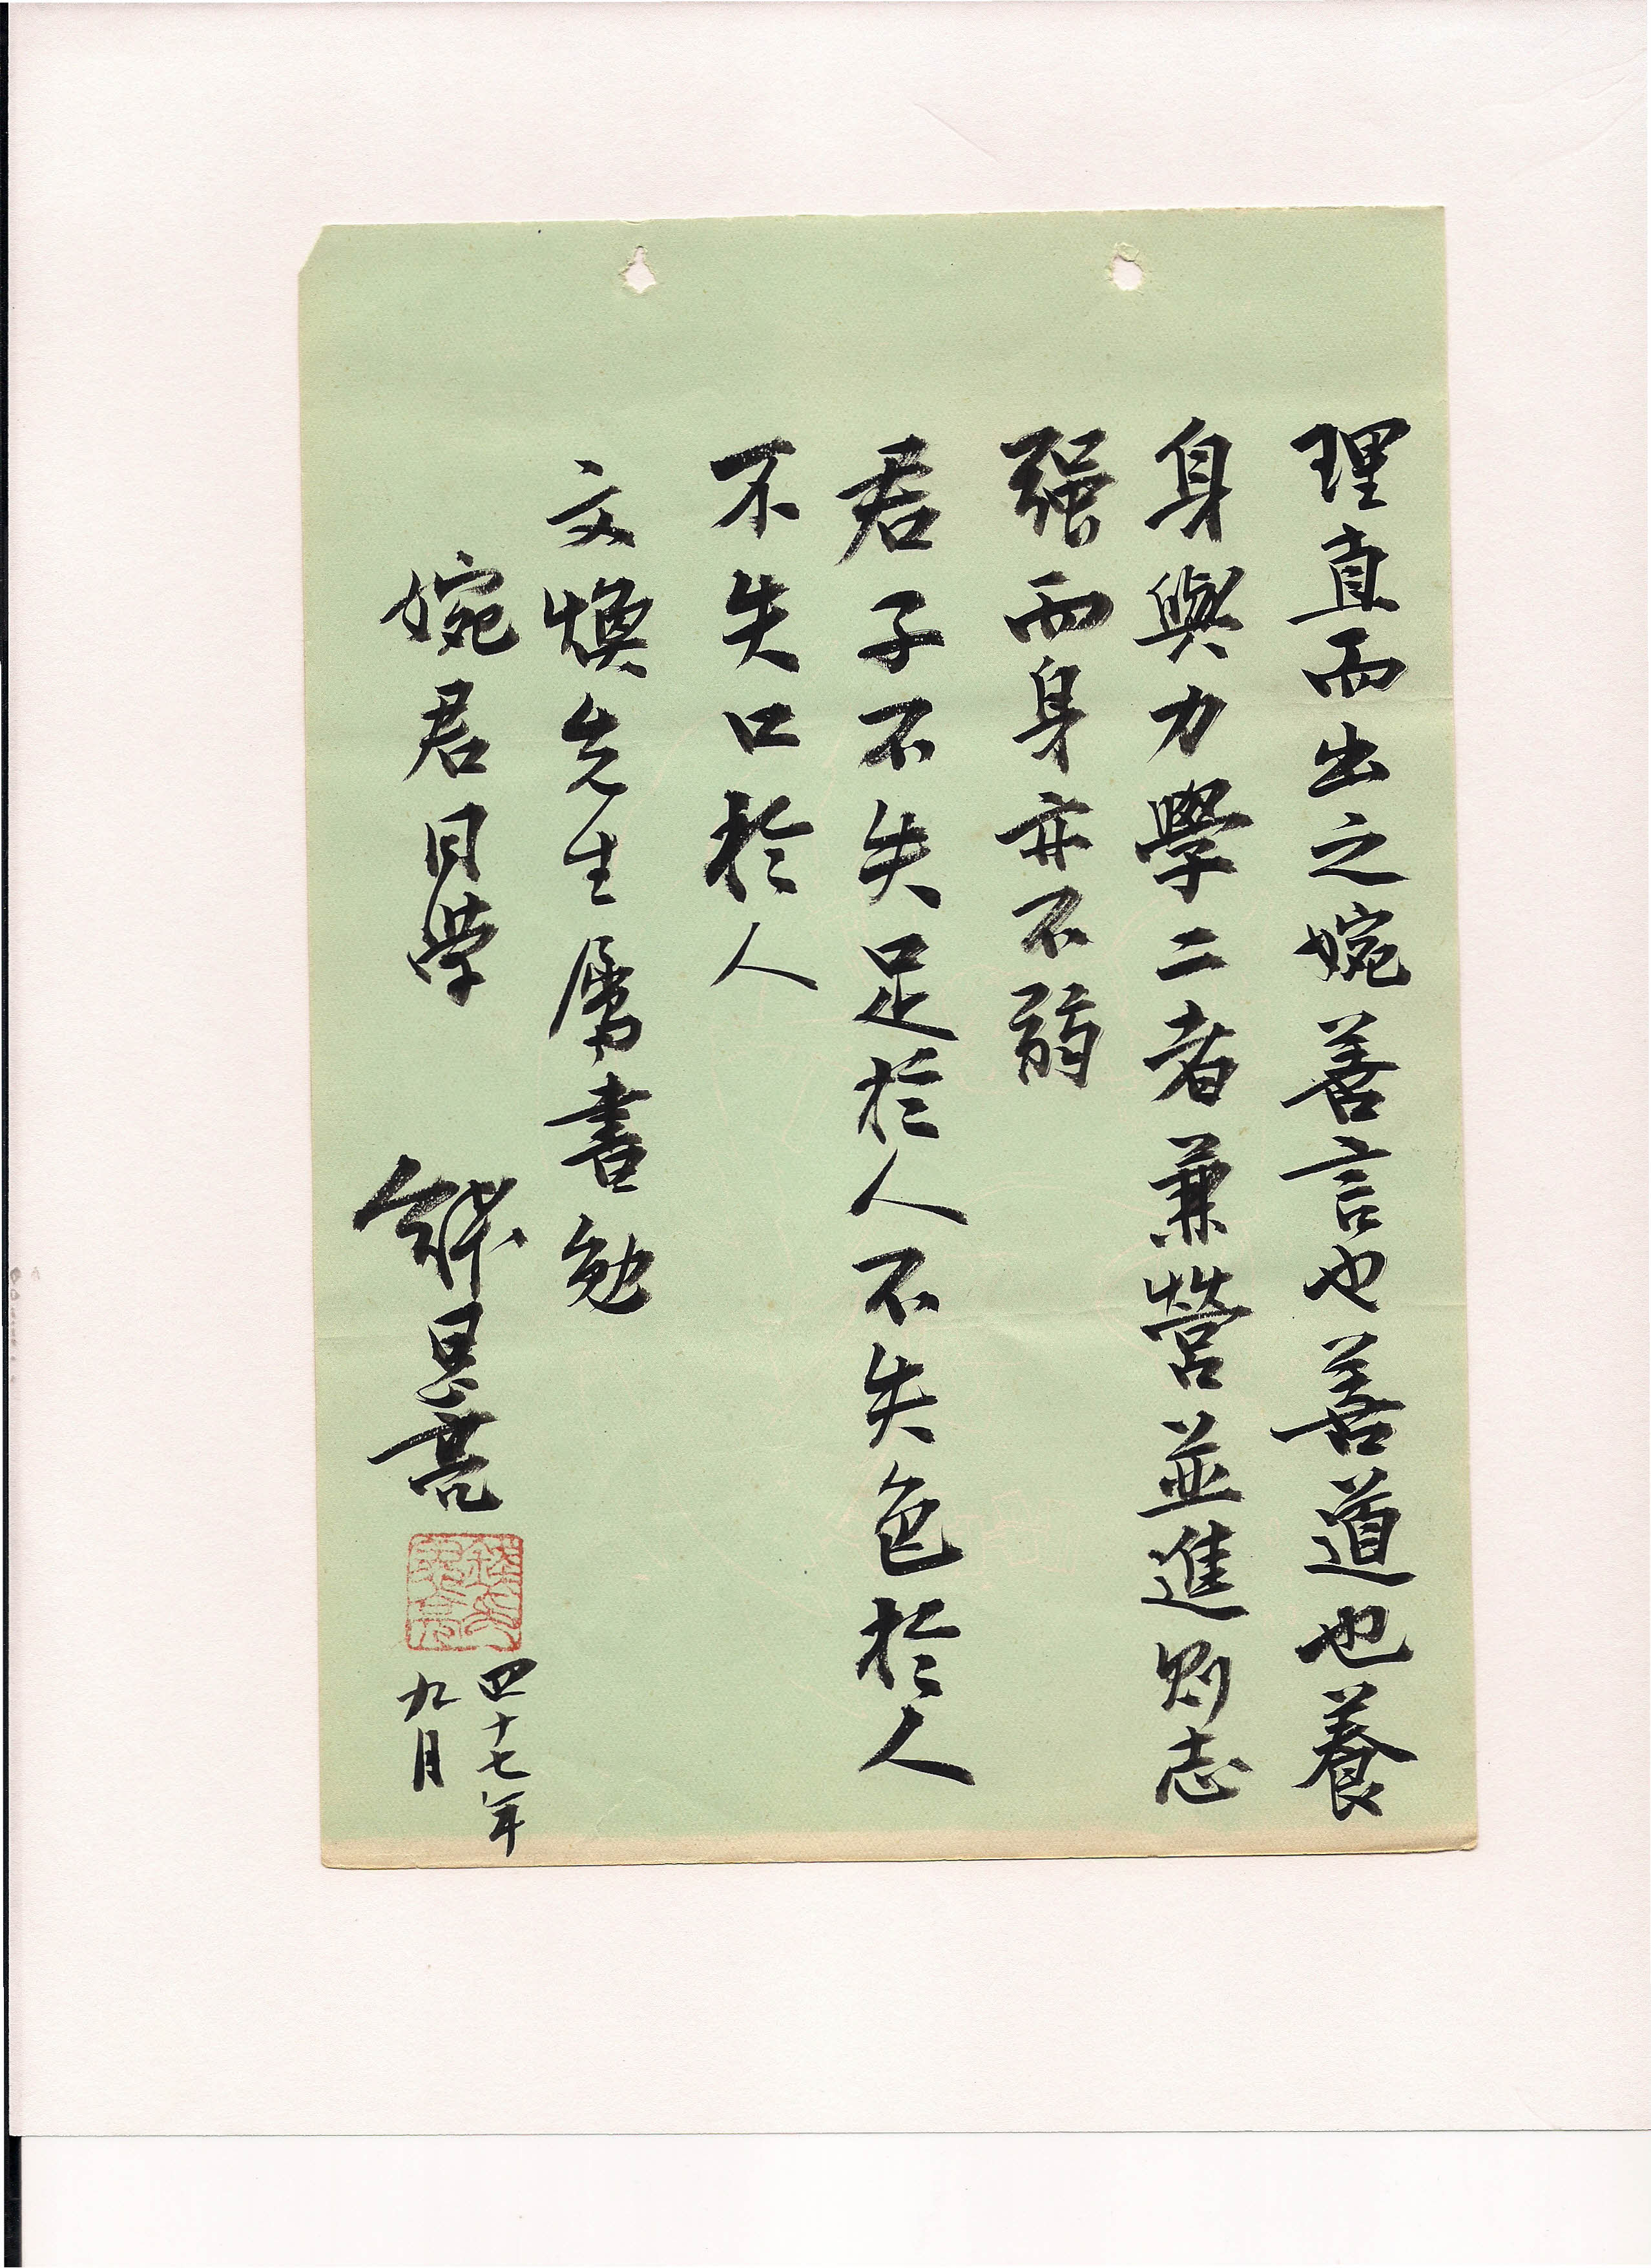 理直而出之婉善言也善道也養
身與力學二者兼營並進則志
强而身亦不弱
君子不失足於人不失色於人
不失口於人
文煥先生屬書勉
婉君同学
錢思亮
四十七年
九月